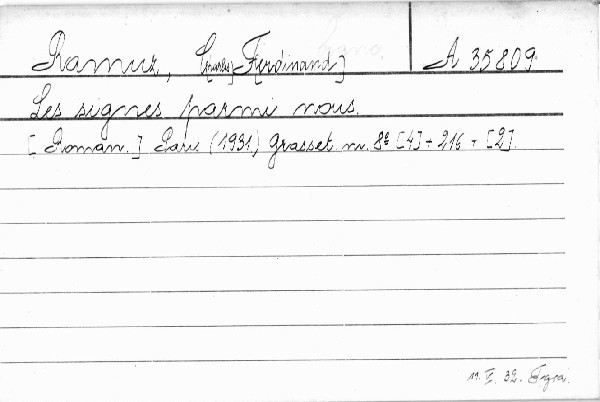 Ramuz, C[harles] F[erdinand] A 35809.
Les signes parmi nous.
[Roman.] Paris (1931) Grasset. 8° [4] + 216 + [2].
19. 32.